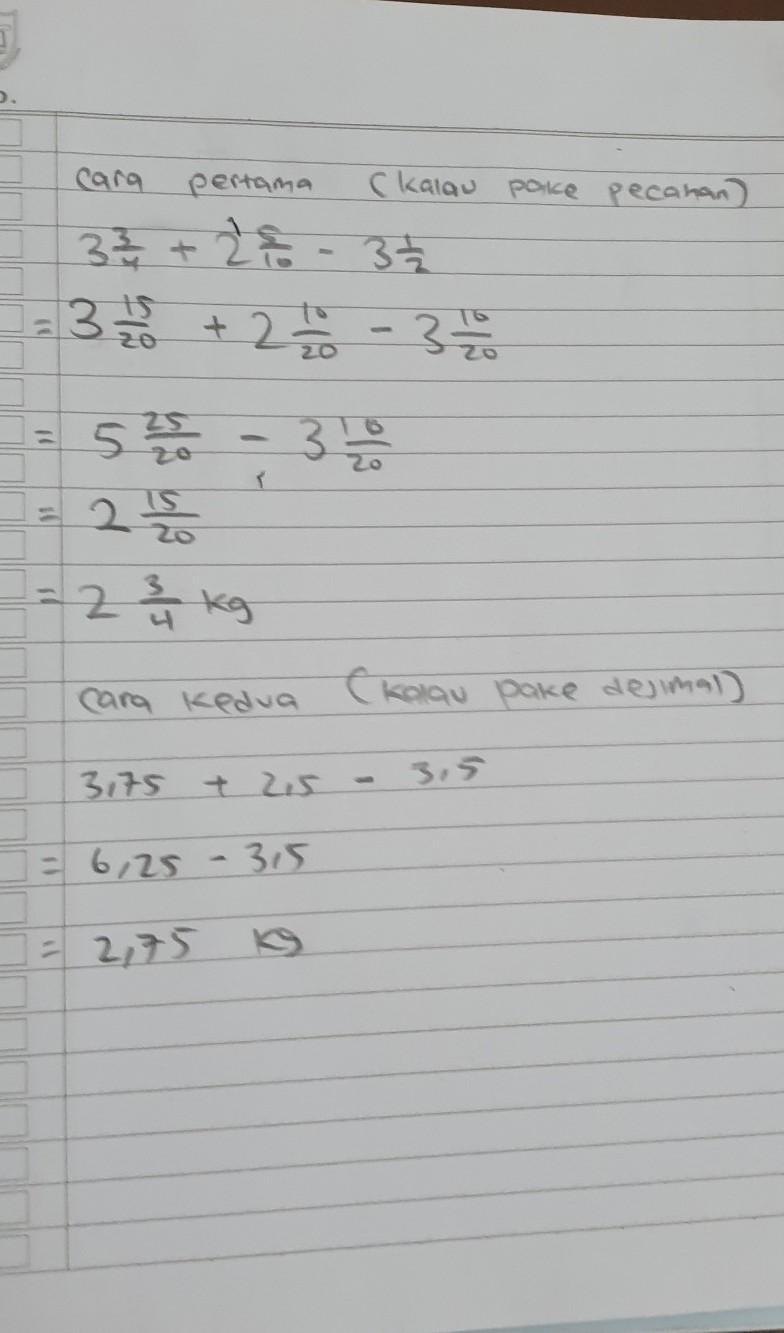 Cara pertama (kalau pake pecahan)
3 3/4 + 2 5/10 - 3 1/2
= 3 15/20 + 2 10/20 - 3 10/20
= 5 25/20 - 3 10/20
= 2 15/20
= 2 3/4 kg
Cara kedua (kalau pake desimal)
3,75 + 2,5 - 3,5
= 6,25 - 3,5
= 2,75 kg